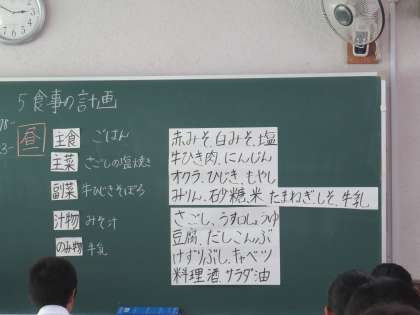 5 食事の計画
昼
主食 ごはん
主菜 さごしの塩焼き
副菜 牛ひじきそぼろ
汁物 みそ汁
のみ物 牛乳
赤みそ、白みそ、塩
牛ひき肉、にんじん
オクラ、ひじき、もやし
みりん、砂糖、米 たまねぎ、しそ、牛乳
さごし、うすしょうゆ
豆腐、だしこんぶ
けずりぶし、キャベツ
料理酒、サラダ油